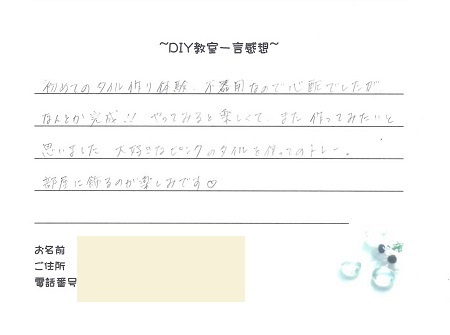 ~DIY教室一言感想~
初めてのタイル作り体験 不器用なので心配でしたが
なんとか完成!! やってみると楽しくて、また作ってみたいと
思いました 大好きなピンクのタイルを使ってのトレー。
部屋に飾るのが楽しみです♡
お名前
ご住所
電話番号